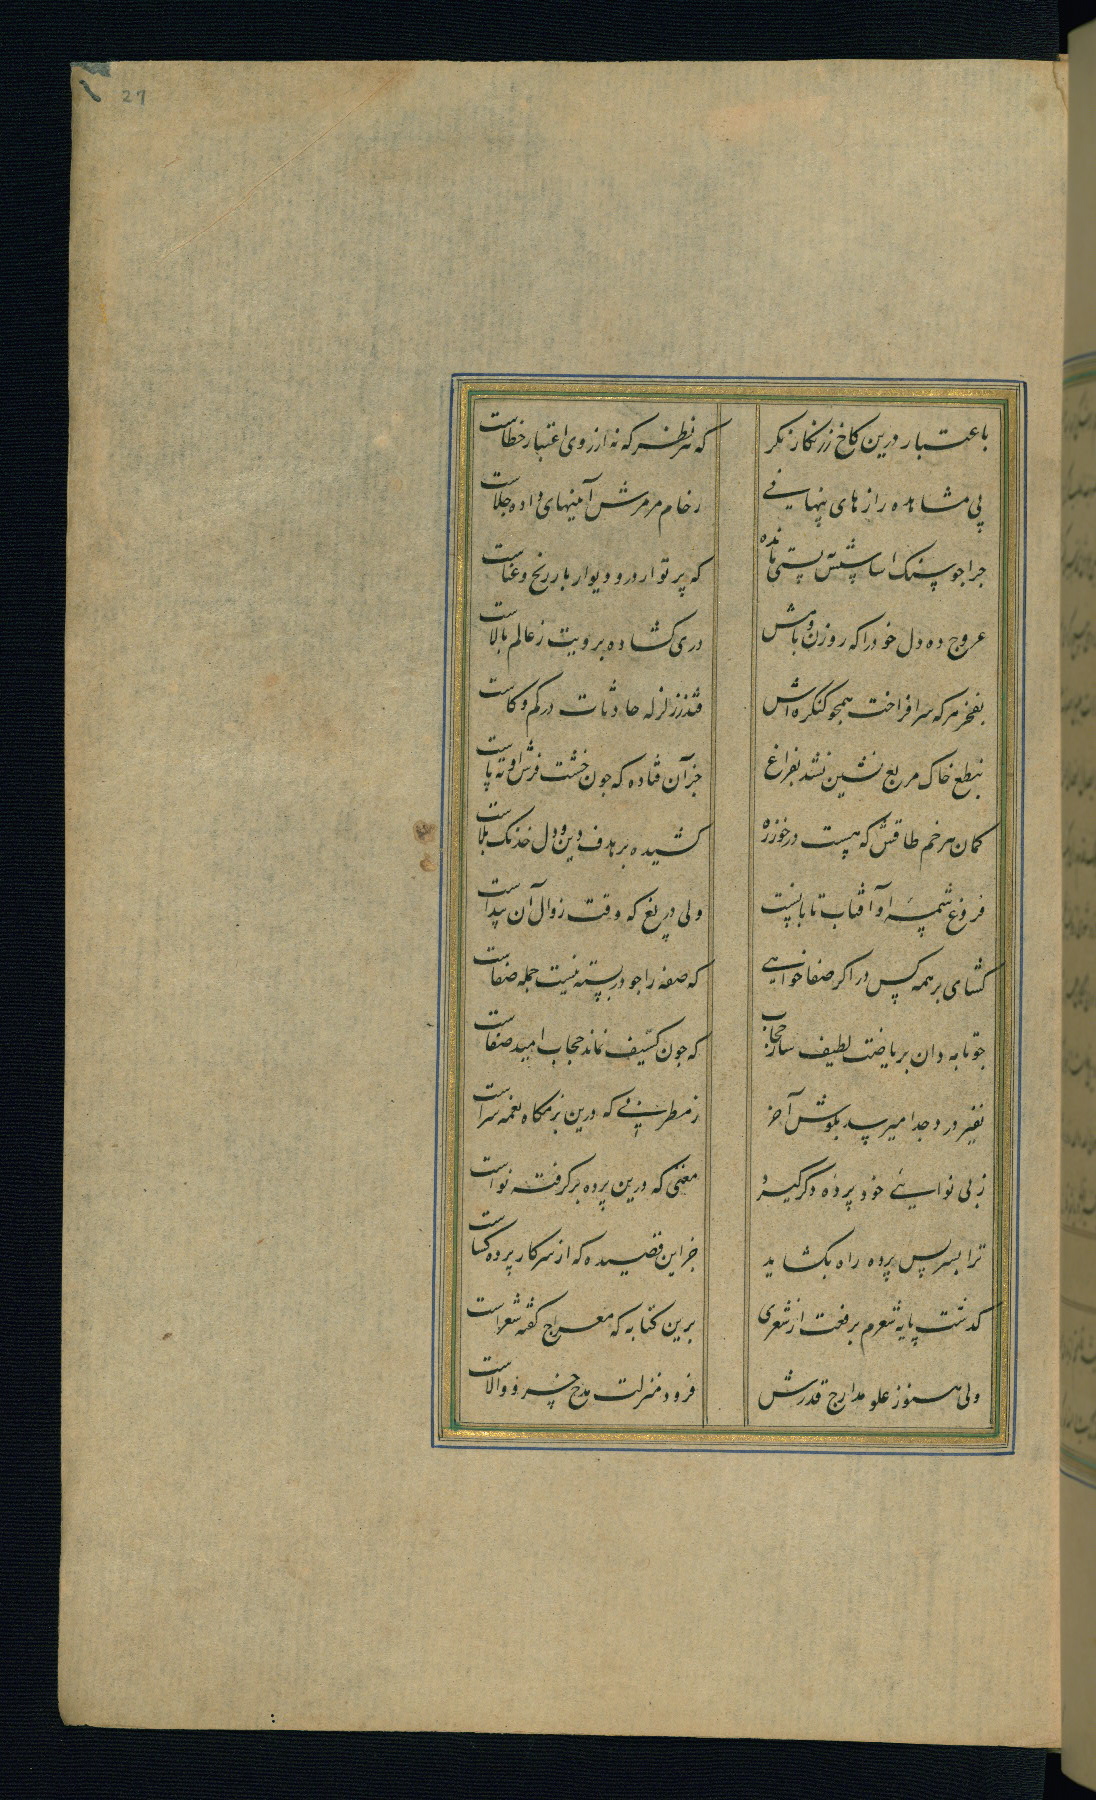 27
باعتبار درین کاخ زرنکار نکر که هر نظر که نه از روی اعتبار خطاست
پی مشاهده رازهای پنهانی رخام مرمرش آینهای داده جلاست
چرا جو سنک اساسش بستی مانده که پرتو از در و دیوار بار رنج و عناست
عروج ده دل خود را که روزن بامش دری کشاده برویت ز عالم بالاست
بفخر هر که سر افراخت همجو کنکره اش فتد ز زلزله حادثات در کم و کاست
بنطع خاک مربع نشین نشد بفراغ جز آن فتاده که جون خشت فرش او ته پاست
کمان هر خم طاقش که هست در خور زه کشیده بر هدف دین و دل خدنک بلاست
فروغ شمسه او آفتاب تابانست ولی دریغ که وقت زوال آن پیداست
کشای بر همه کس در اکر صفا خواهی که صفه را جو در بسته نیست جمله صفاست
جو تابه دان بریاضت لطیف ساز حجاب که جون کثیف نماند حجاب امید صفاست
نفیر درد جدا میرسد بکوش آخر ز مطربی که درین بزمکاه نغمه سراست
ز بی نوایی خود پرده دکر کیرد مغنی که درین پرده برکرفته نواست
ترا بسر پس پرده راه بکشاید جز این قصیده که از سر کار پرده کشاست
کذشت پایه شعرم برفعت از شعری برین کتابه که معراج کفته شعراست
ولی هنوز ز علو مدارج قدرش فرود منزلت مدح خسرو والاست